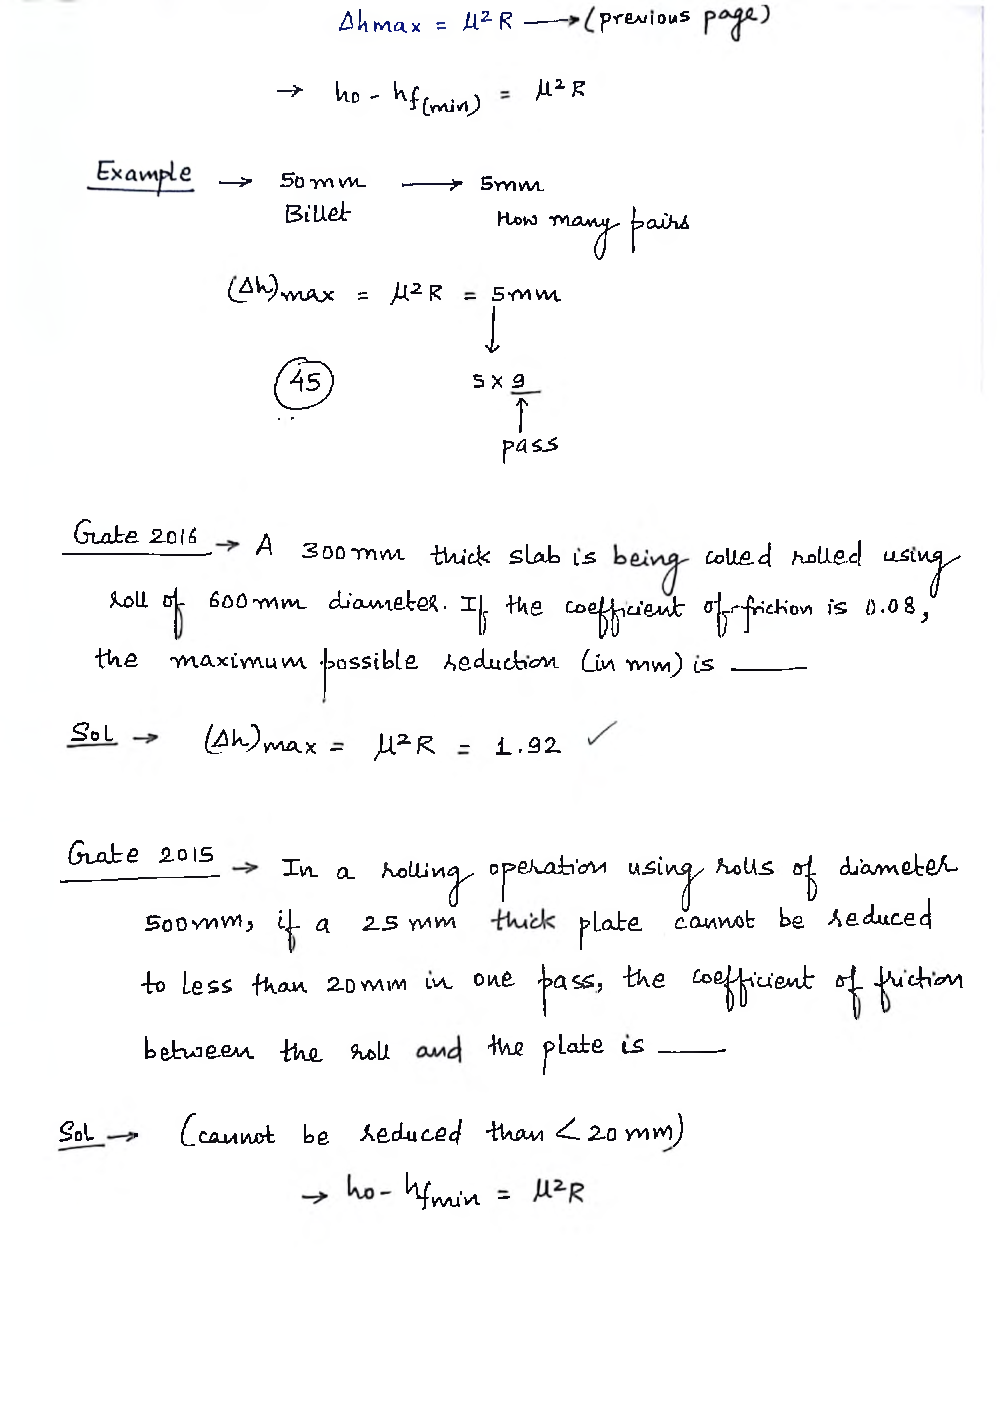 Δhmax = μ²R → (previous page)
→ ho - hf(min) = μ²R
Example → 50mm → 5mm
Billet How many pairs
(Δh)max = μ²R = 5mm
↓
45 5 x 9
↑
pass
Gate 2016 → A 300mm thick slab is being colled rolled using
roll of 600mm diameter. If the coefficient of friction is 0.08,
the maximum possible reduction (in mm) is ___
Sol → (Δh)max = μ²R = 1.92 ✓
Gate 2015 → In a rolling operation using rolls of diameter
500mm, if a 25mm thick plate cannot be reduced
to less than 20mm in one pass, the coefficient of friction
between the roll and the plate is ___
Sol → (cannot be reduced than < 20mm)
→ ho - hfmin = μ²R